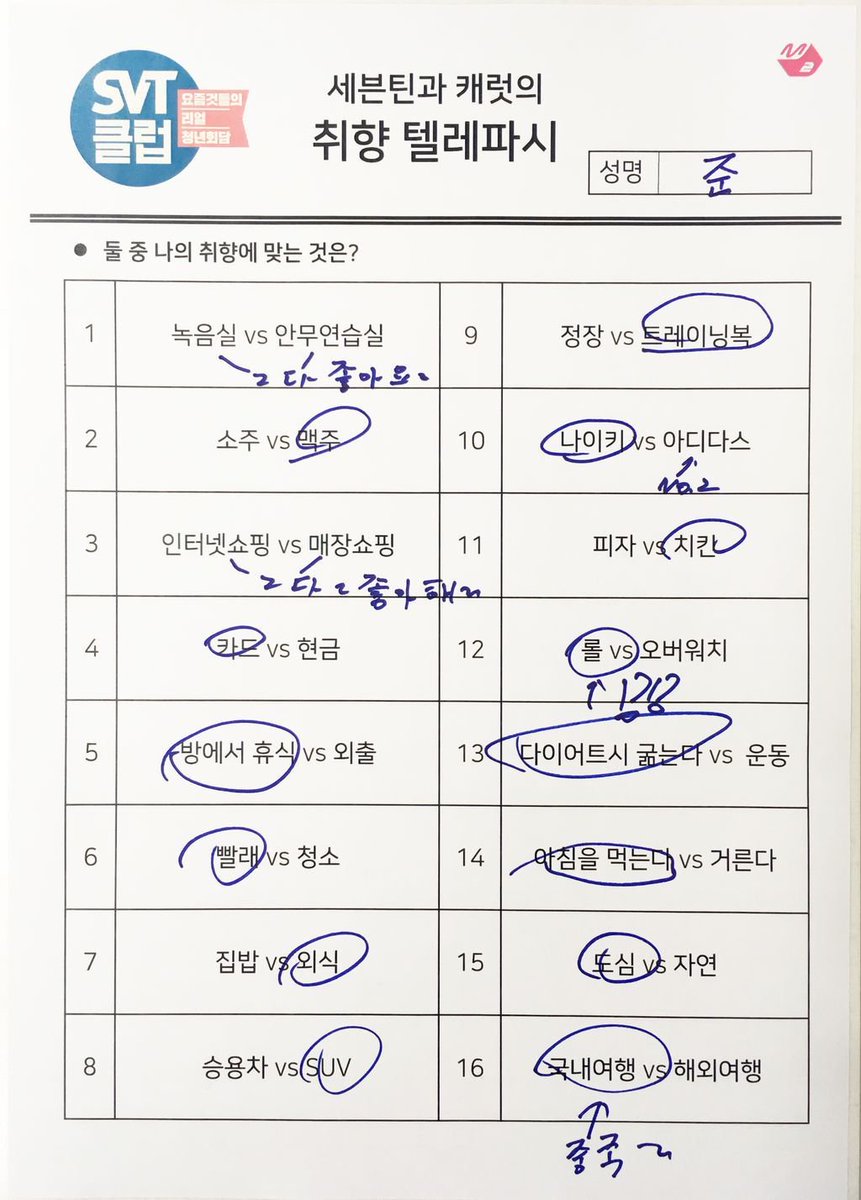 SVT
클럽
요즘것들의
리얼
청년회담
M2
세븐틴과 캐럿의
취향 텔레파시
성명 준
● 둘 중 나의 취향에 맞는 것은?
1 녹음실 vs 안무연습실
다 좋아요
2 소주 vs 맥주
3 인터넷쇼핑 vs 매장쇼핑
다 좋아해
4 카드 vs 현금
5 방에서 휴식 vs 외출
6 빨래 vs 청소
7 집밥 vs 외식
8 승용차 vs SUV
9 정장 vs 트레이닝복
10 나이키 vs 아디다스
No.2
11 피자 vs 치킨
12 롤 vs 오버워치
13 다이어트시 굶는다 vs 운동
14 아침을 먹는다 vs 거른다
15 도심 vs 자연
16 국내여행 vs 해외여행
중국